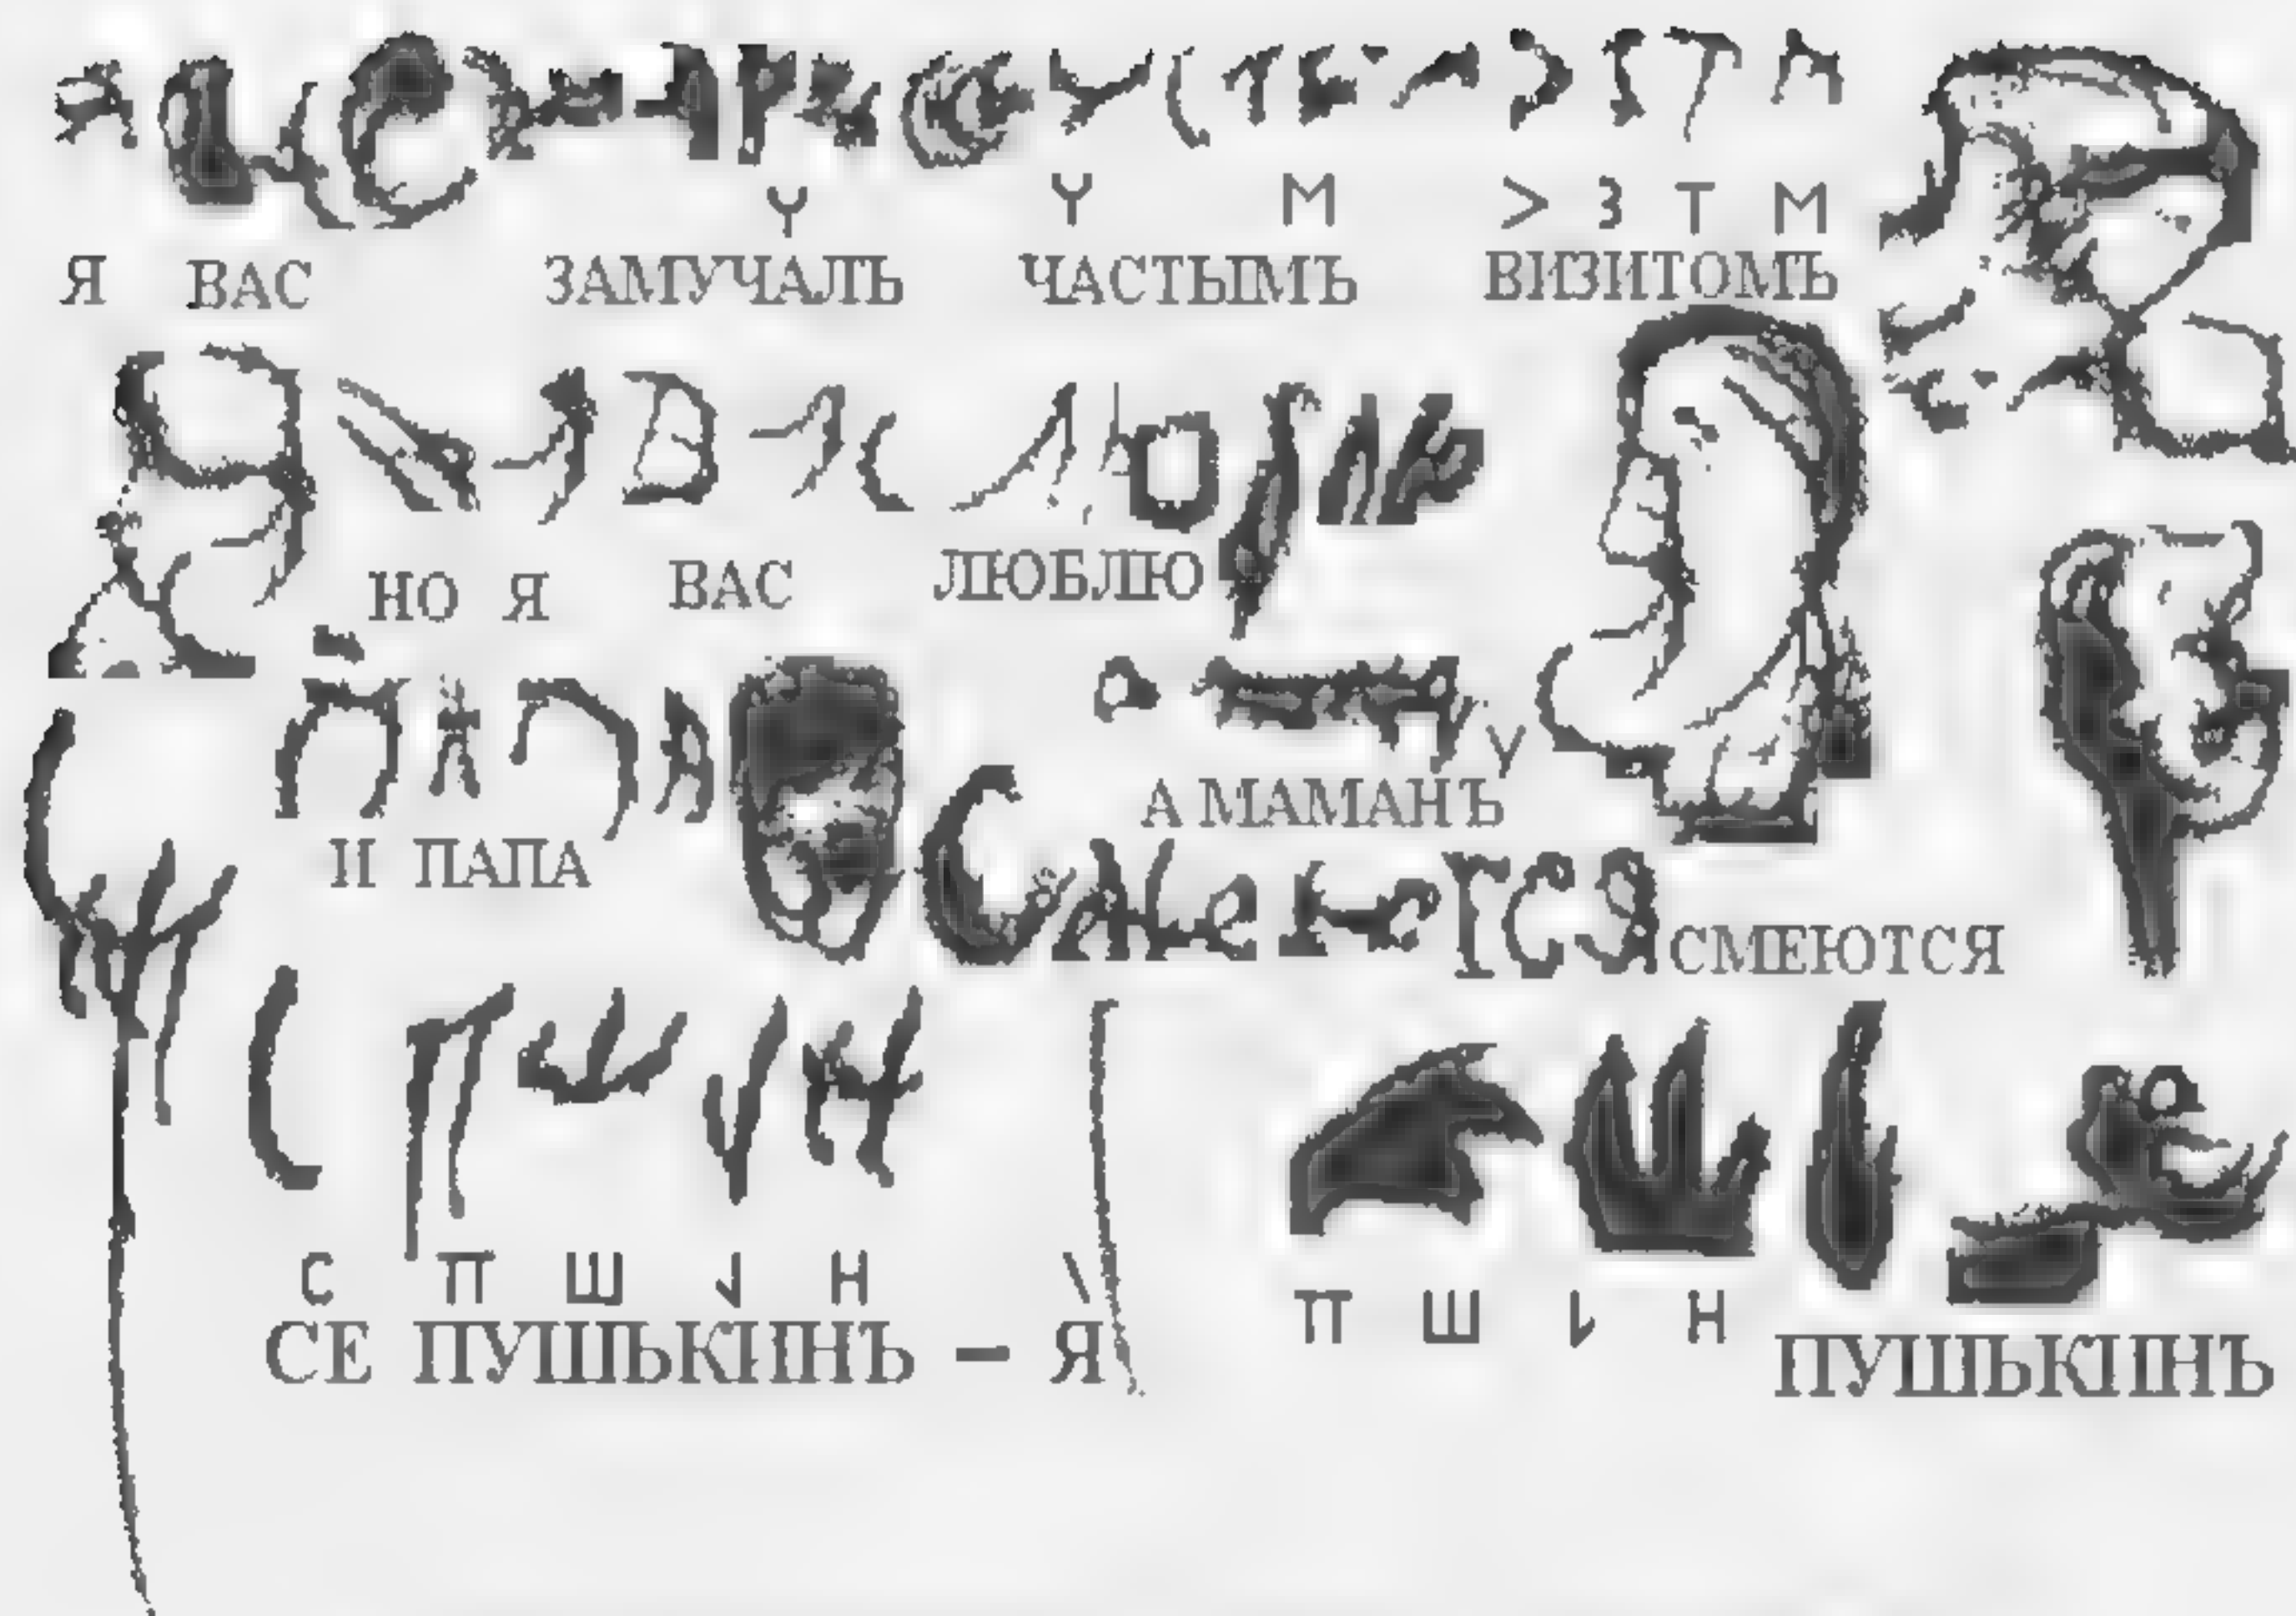 Я ВАС ЗАМУЧАЛЪ ЧАСТЫМЪ ВИЗИТОМЪ
НО Я ВАС ЛЮБЛЮ
А МАМАНЪ
И ПАПА
СМЕЮТСЯ
С П Ш Н
СЕ ПУШЬКIИНЪ – Я
П Ш Н
ПУШЬКIИНЪ